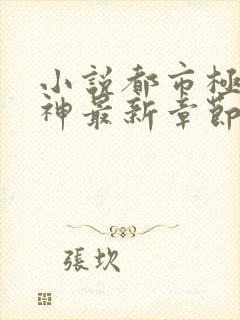 小説都市極
神最新章節
張坎